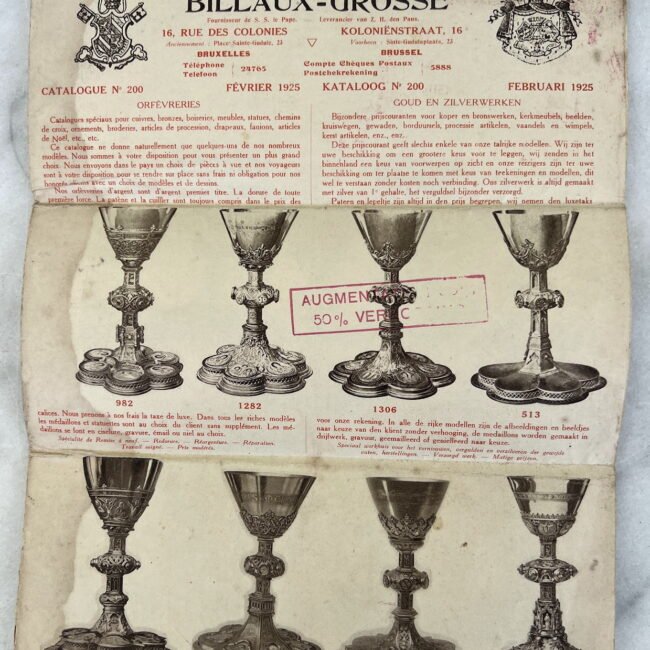 BILLAUX-GROSSÉ
Fournisseur de S. S. le Pape. Leverancier van Z. H. den Paus.
16, RUE DES COLONIES KOLONIËNSTRAAT, 16
Anciennement : Place Sainte-Gudule, 23 Voorheen : Sinte-Guduleplaats, 23
BRUXELLES BRUSSEL
Téléphone Telefoon 24765 Compte Chèques Postaux Postchekrekening 5888
CATALOGUE Nº 200 FÉVRIER 1925 KATALOOG Nº 200 FEBRUARI 1925
ORFÉVRERIES
Catalogues spéciaux pour cuivres, bronzes, boiseries, meubles, statues, chemins
de croix, ornements, broderies, articles de procession, drapeaux, fanions, articles
de Noël, etc., etc.
Ce catalogue ne donne naturellement que quelques-uns de nos nombreux
modèles. Nous sommes à votre disposition pour vous présenter un plus grand
choix. Nous envoyons dans le pays un choix de pièces à vue et nos voyageurs
sont à votre disposition pour se rendre sur place sans frais ni obligation pour nos
honorés clients avec un choix de modèles et de dessins.
Nos orfèvreries d'argent sont argent premier titre. La dorure de toute
première force. La patène et la cuiller sont toujours compris dans le prix des
GOUD EN ZILVERWERKEN
Bijzondere prijscouranten voor koper en bronswerken, kerkmeubels, beelden,
kruiswegen, gewaden, borduursels, processie artikelen, vaandels en wimpels,
kerst artikelen, enz., enz.
Deze prijscourant geeft slechts enkele van onze talrijke modellen. Wij zijn ter
uwe beschikking om een grooteren keus voor te leggen, wij zenden in het
binnenland een keus van voorwerpen op zicht en onze reizigers zijn ter uwe
beschikking om ter plaatse te komen met keus van teekeningen en modellen, dit
wel te verstaan zonder kosten noch verbinding. Ons zilverwerk is altijd gemaakt
met zilver van 1e gehalte, het verguldsel bijzonder verzorgd.
Pateen en lepeltje zijn altijd in den prijs begrepen, wij nemen den luxetaks
AUGMEN
50% VER
982 1282 1306 513
calices. Nous prenons à nos frais la taxe de luxe. Dans tous les riches modèles
les médaillons et statuettes sont au choix du client sans supplément. Les mé-
daillons se font en ciselure, gravure, émail ou niel au choix.
Spécialité de Remise à neuf. — Redorure. — Réargenture. — Réparation.
Travail soigné. — Prix modérés.
voor onze rekening. In alle de rijke modellen zijn de afbeeldingen en beeldjes
naar keuze van den klient zonder verhooging, de medaillons worden gemaakt in
drijfwerk, gravuur, geemailleerd of genielleerd naar keuze.
Speciaal werkhuis voor het vernieuwen, vergulden en verzilveren der gewijde
vaten, herstellingen. — Verzorgd werk. — Matige prijzen.